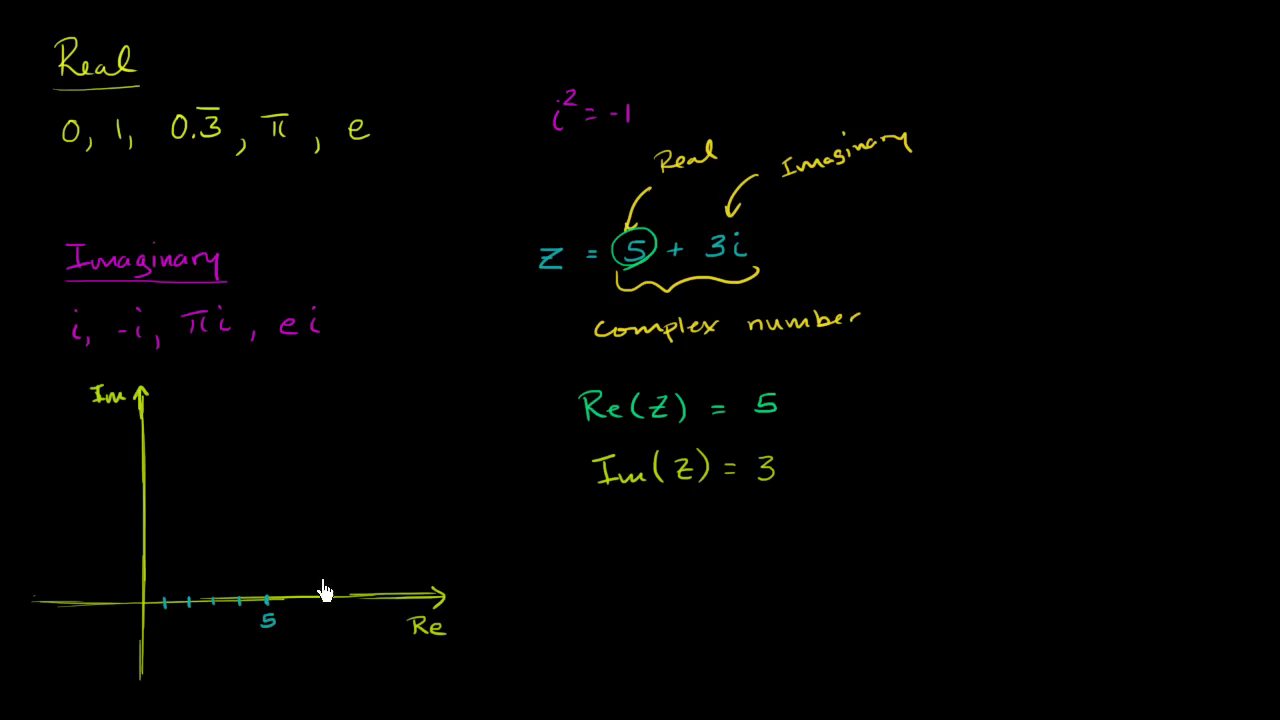 Real
0, 1, 0.3̅, π, e
Imaginary
i, -i, πi, ei
i² = -1
Real
Imaginary
Z = 5 + 3i
Complex number
Re(Z) = 5
Im(Z) = 3
Im
5
Re